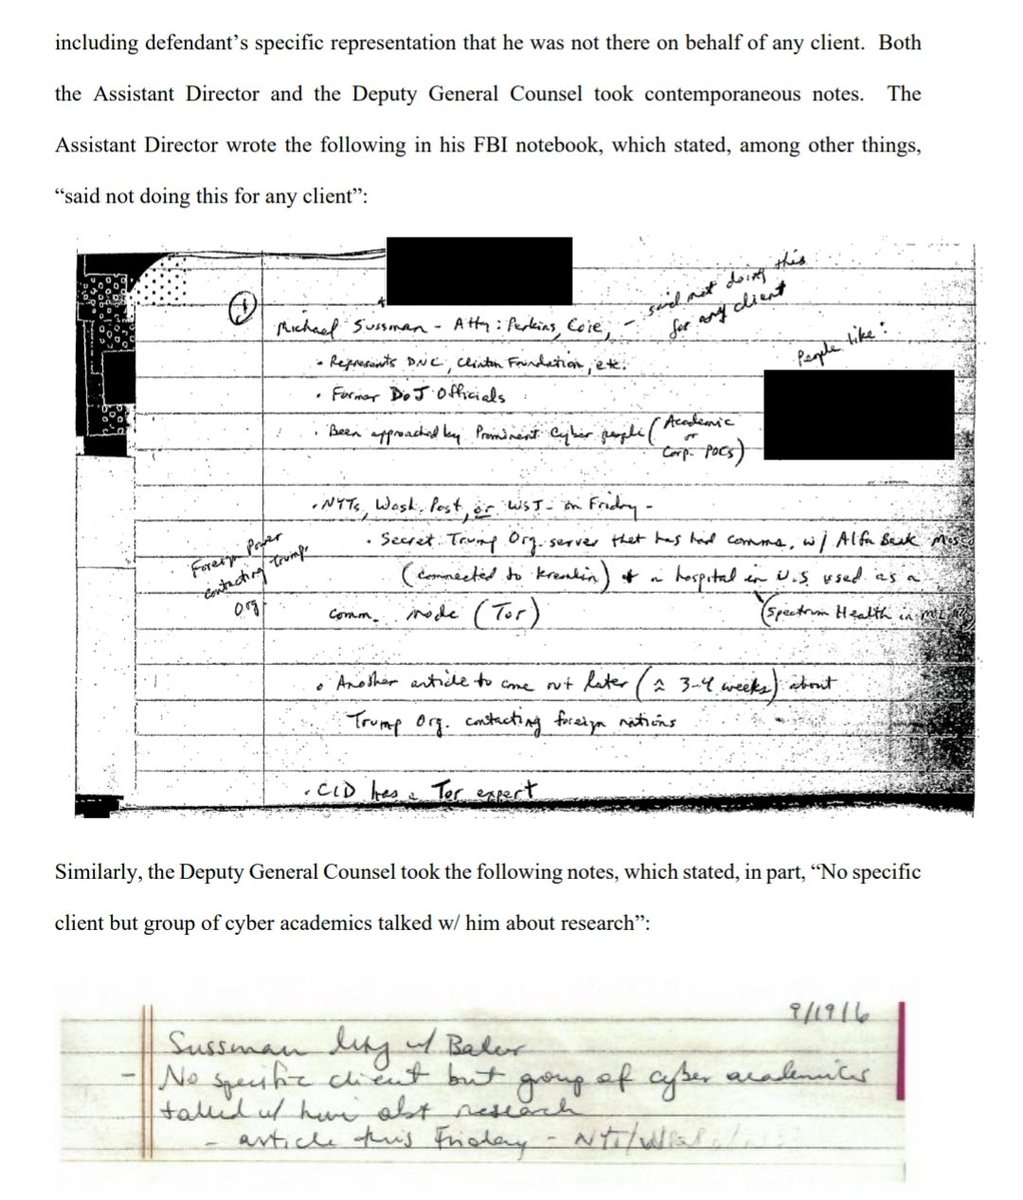 including defendant’s specific representation that he was not there on behalf of any client. Both
the Assistant Director and the Deputy General Counsel took contemporaneous notes. The
Assistant Director wrote the following in his FBI notebook, which stated, among other things,
“said not doing this for any client”:
Michael Sussman - Atty: Perkins Coie, - said not doing this
for any client
• Represents DNC, Clinton Foundation, etc.
People like:
• Former DoJ Officials
• Been approached by Prominent Cyber people (Academic
or
Corp. POCs)
• NYTs, Wash. Post, or WSJ - on Friday -
• Secret Trump Org. server that has had comms. w/ Alfa Bank
Foreign Power
contacting Trump
Org
(connected to Kremlin) + a hospital in U.S. used as a
comm. node (Tor)
(Spectrum Health in
• Another article to come out later (≈ 3-4 weeks) about
Trump Org. contacting foreign nations
• CID has a Tor expert
Similarly, the Deputy General Counsel took the following notes, which stated, in part, “No specific
client but group of cyber academics talked w/ him about research”:
9/19/16
Sussman Mtg w/ Baker
- No specific client but group of cyber academics
talked w/ him abt research
- article this Friday - NYT/